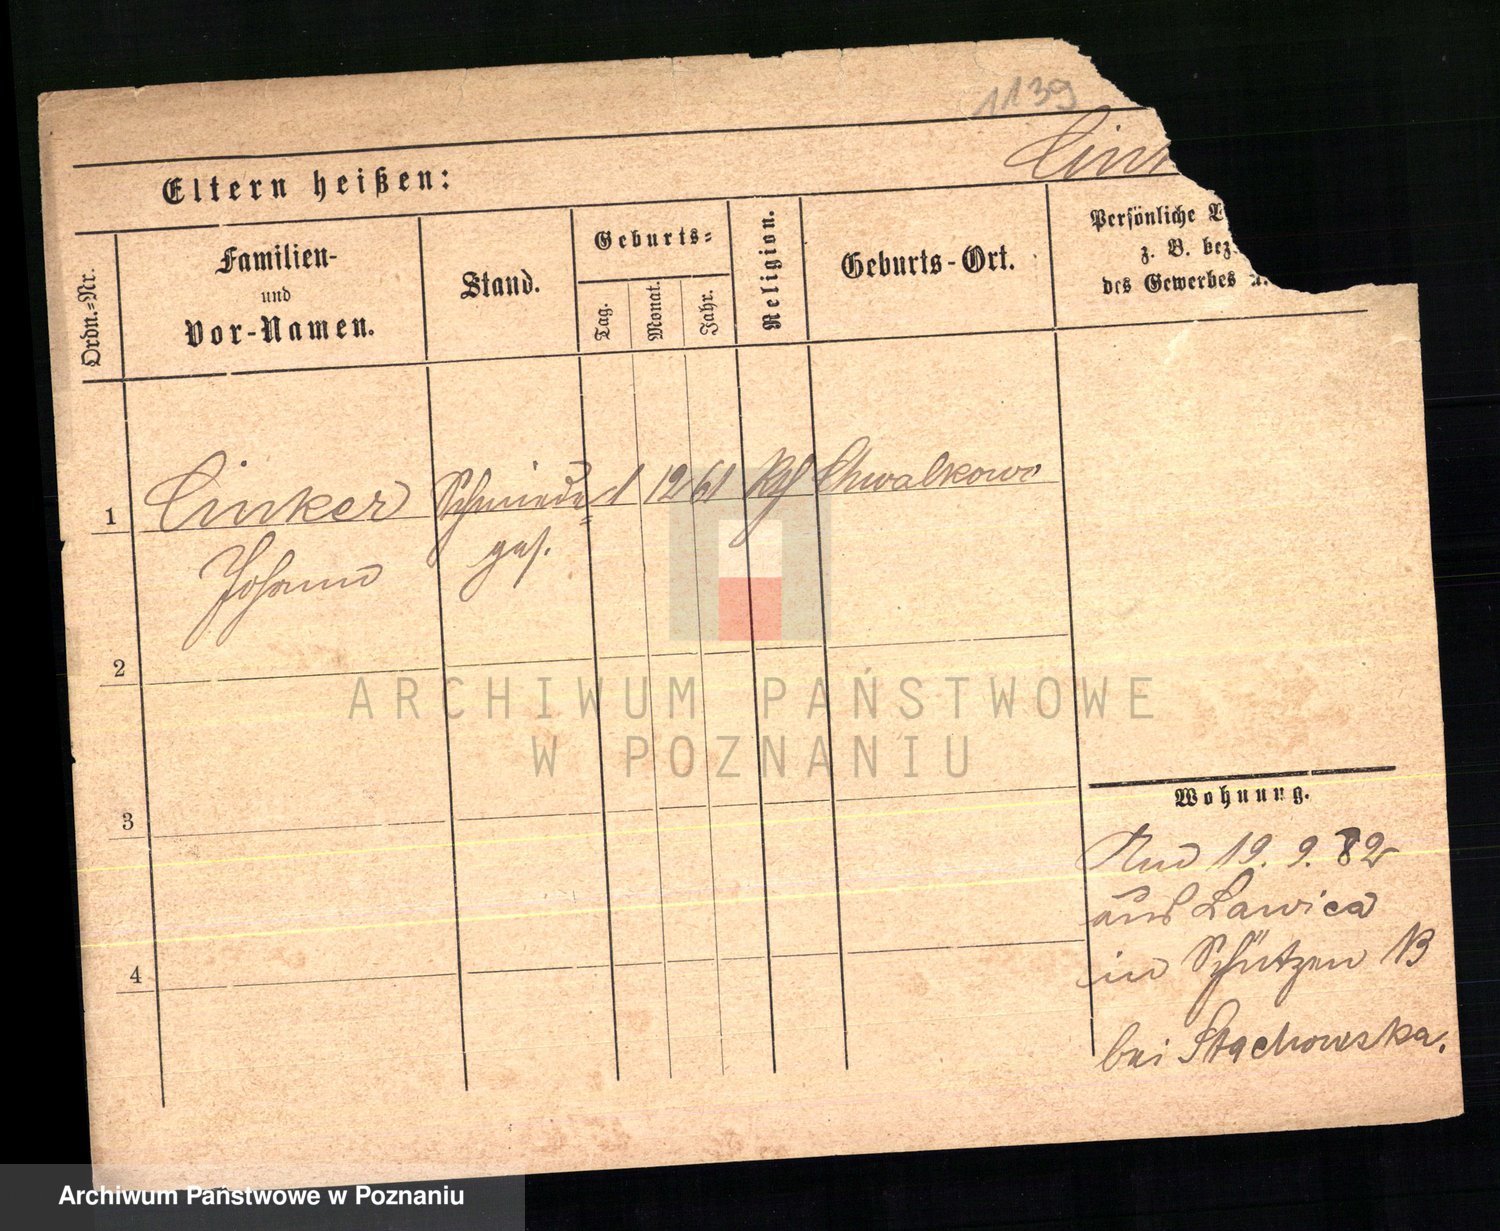 1139
Cink
Eltern heißen:
Ordn.-Nr.
Familien-
und
Vor-Namen.
Stand.
Geburts-
Tag.
Monat.
Jahr.
Religion.
Geburts-Ort.
Persönliche
z. B. bez
des Gewerbes u.
1 Cinker Schmiede= 1 12 61 Kth Chwalkowo
Johann ges.
2
3
4
Wohnung.
19. 9. 82
aus Lawica
in Schützen 13
bei Stachowska.
ARCHIWUM PAŃSTWOWE
W POZNANIU
Archiwum Państwowe w Poznaniu